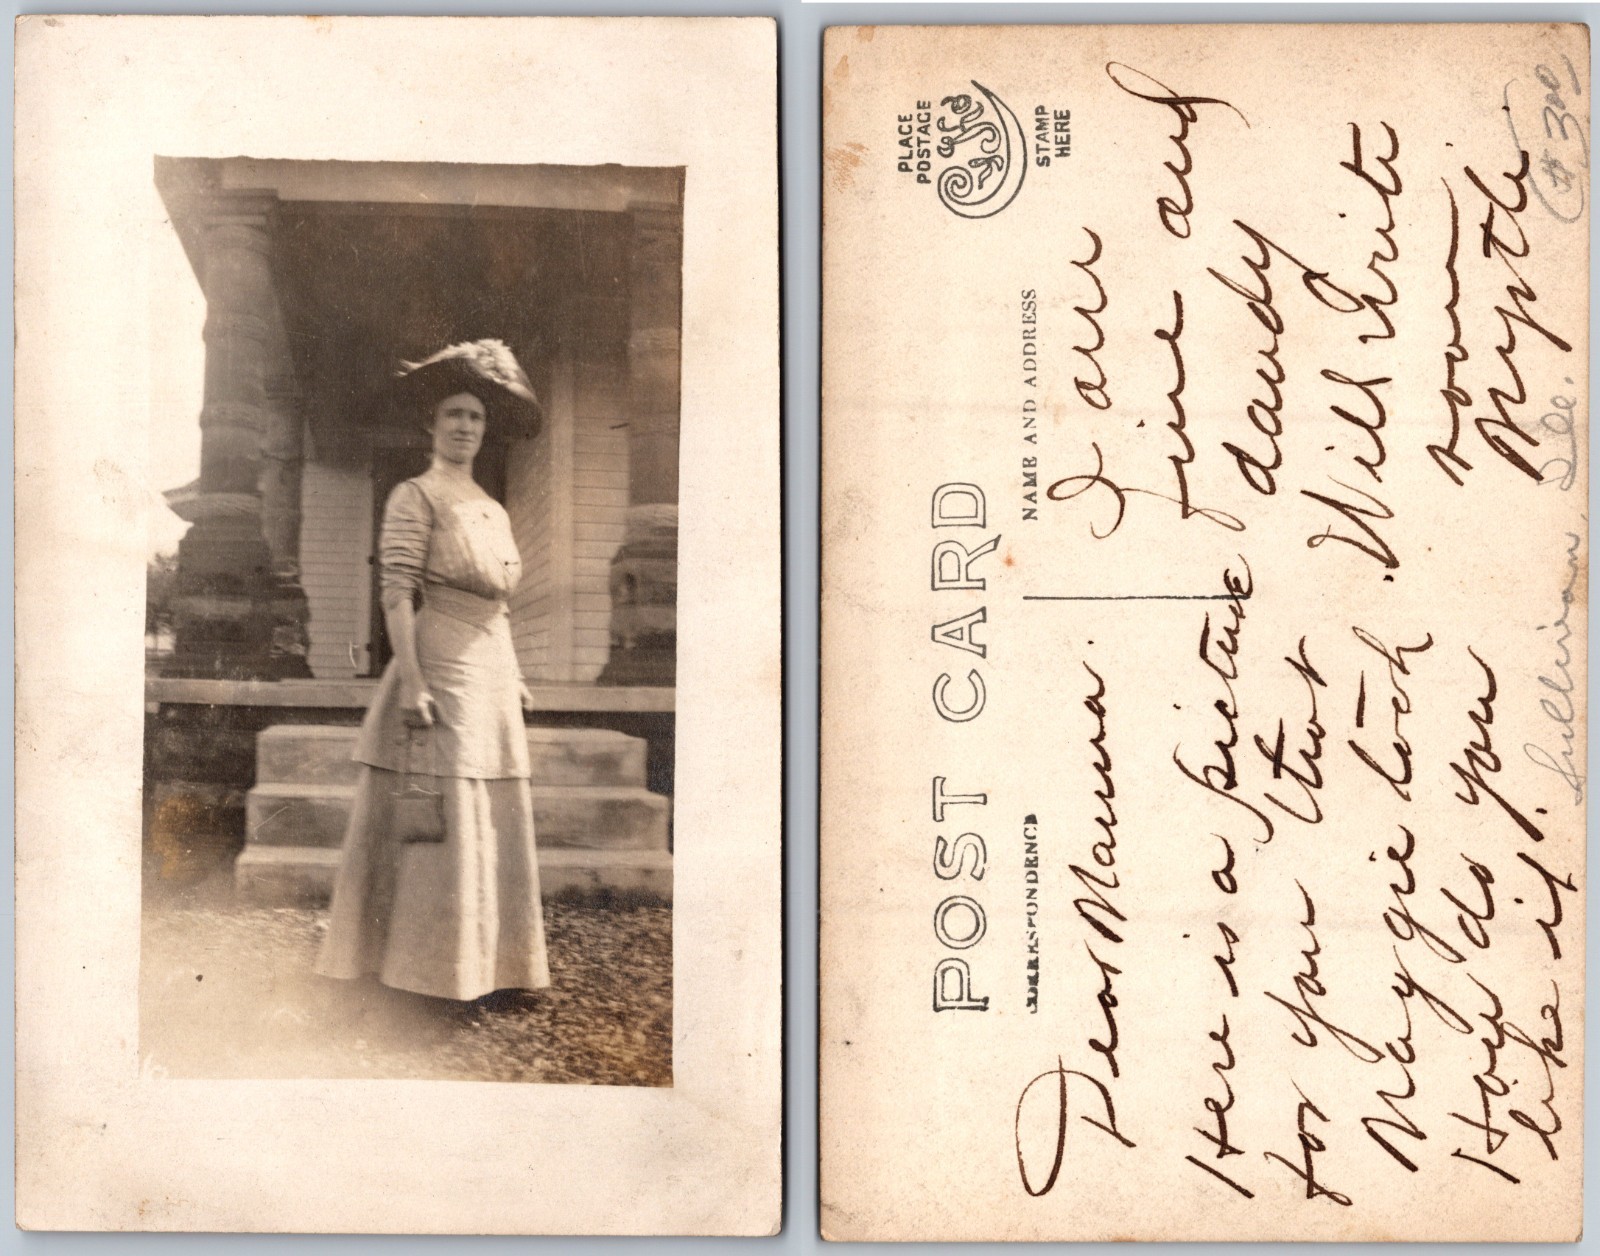 POST CARD
CORRESPONDENCE
NAME AND ADDRESS
PLACE
POSTAGE
STAMP
HERE
Dear Mamma.
Here is a picture
for you that
Maygie took
How do you
like it.
I am
fine and
dandy
Will Write
soon
Myrtle.
Sullivan, Ill.